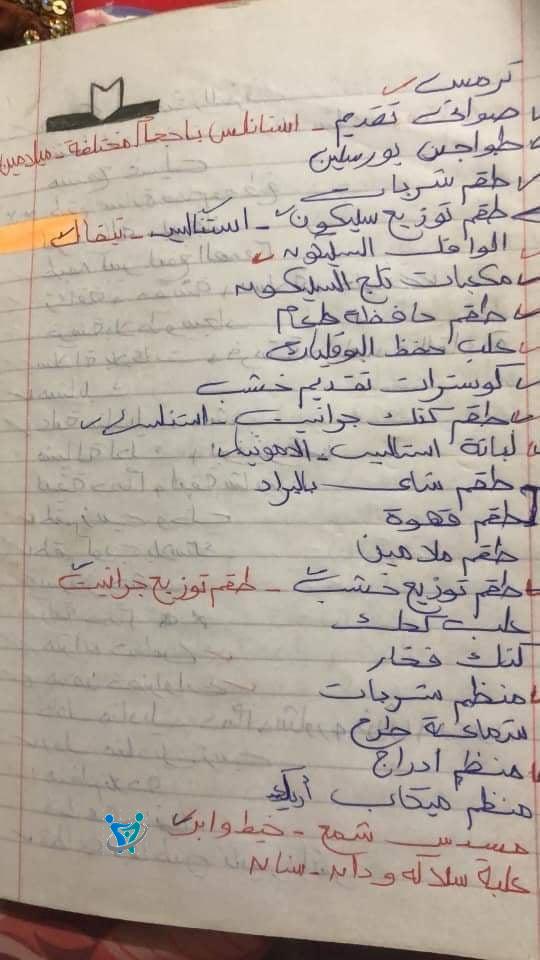 ترمس
صواني تقديم - استانلس باحجام مختلفة - ميلامين
طواجن بورسلين
طقم شربات
طقم توزيع سليكون - استنالس - تيفال
الوافل السليكون
مكعبات تلج السليكون
طقم حافظه طعام
علب حفظ البوقليات
كوسترات تقديم خشب
طقم كنك جرانيت - استنلس
لبانة استاليس - الامونيا
طقم شاى بالبراد
طقم قهوة
طقم ملامين
طقم توزيع خشب - طقم توزيع جرانيت
علب كحك
كنك فخار
منظم مشربات
شماعة طرح
منظم ادراج
منظم ميكاب أكريلك
مسدس شمع - خيط وابر
علبة سلاكه ودان - سنان